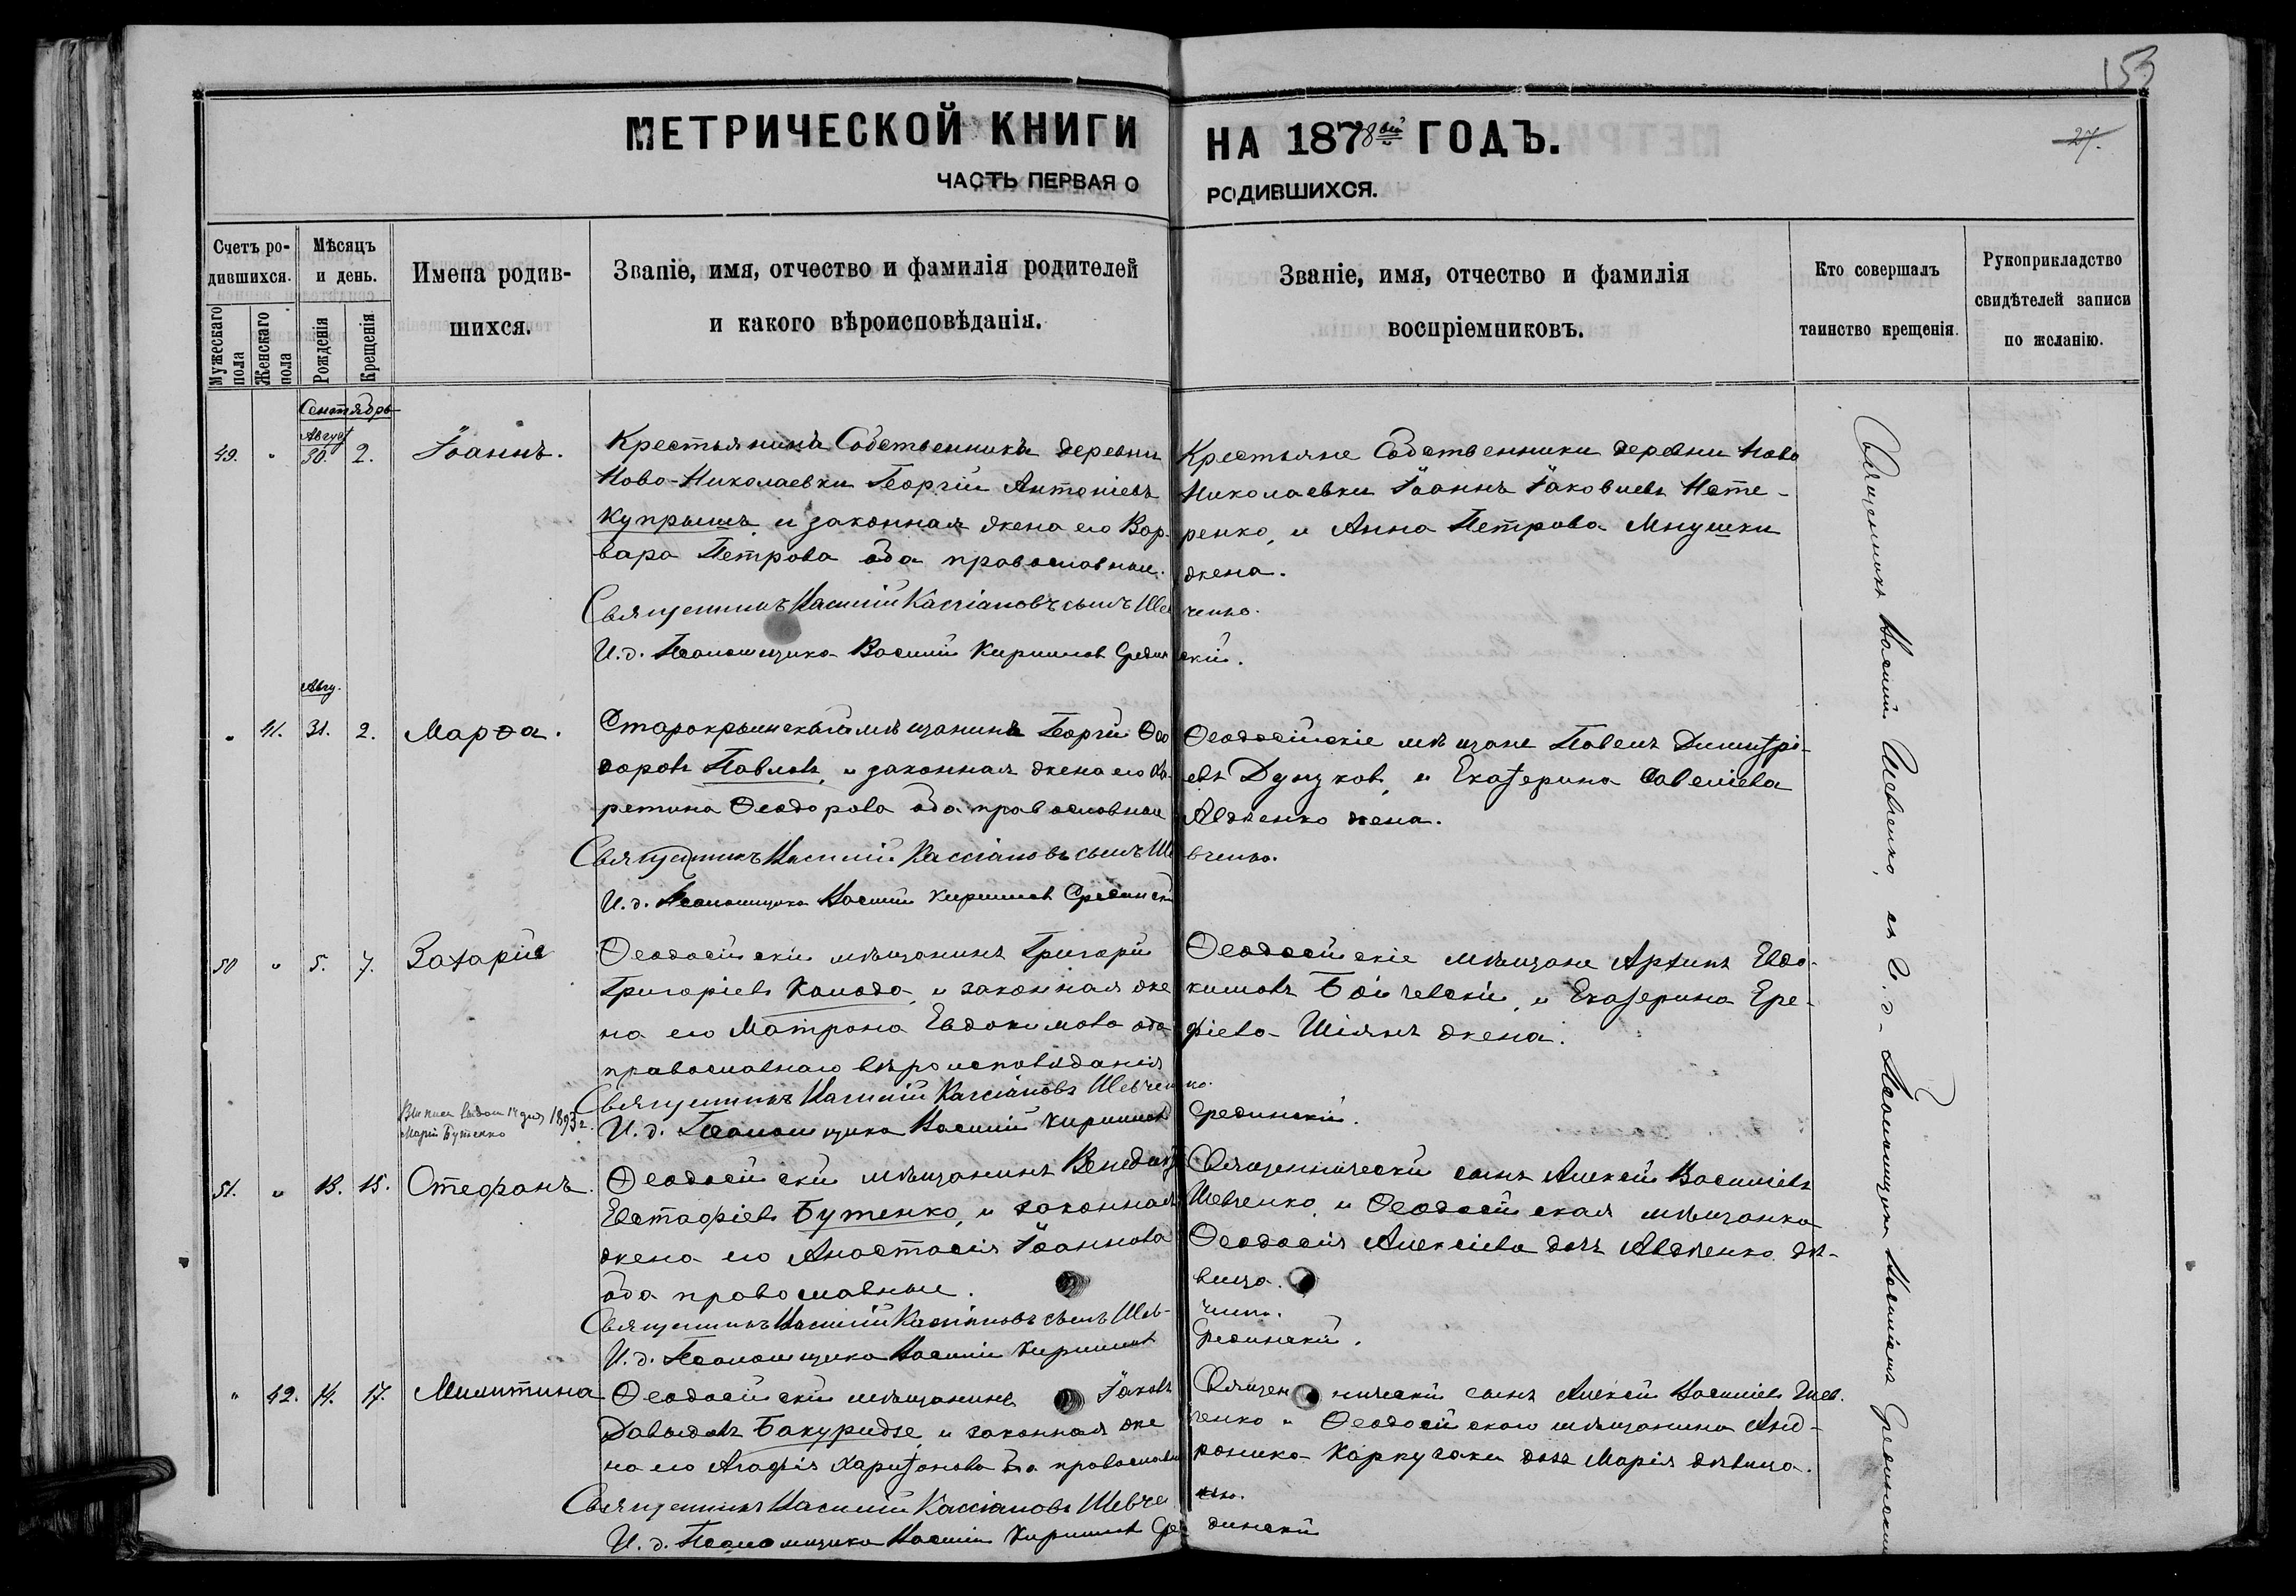 153
МЕТРИЧЕСКОЙ КНИГИ НА 1878ой ГОДЪ.
27.
ЧАСТЬ ПЕРВАЯ О РОДИВШИХСЯ.
Счетъ ро-
дившихся.
Мужескаго пола
Женскаго пола
Мѣсяцъ
и день.
Рожденія
Крещенія
Имена родив-
шихся.
Званіе, имя, отчество и фамилія родителей
и какого вѣроисповѣданія.
Званіе, имя, отчество и фамилія
воспріемниковъ.
Кто совершалъ
таинство крещенія.
Рукоприкладство
свидѣтелей записи
по желанію.
Сентябрь
Август
49. " 30. 2. Іоаннъ.
Крестьянинъ Собственникъ деревни
Ново-Николаевки Георгій Антоніевъ
Купрышъ и законная жена его Вар-
вара Петрова оба православные.
Священникъ Василій Кассіановъ сынъ Шевченко.
И. д. Псаломщика Василій Кирилловъ Срединскій.
Крестьяне Собственники деревни Ново
Николаевки Іоаннъ Іаковлевъ Несте-
ренко, и Анна Петрова Мнушки
жена.
Авгу.
" 41. 31. 2. Марѳа.
Старокрымскій мѣщанинъ Георгій Ѳео
доровъ Павловъ, и законная жена его
Ѳеодорова оба православные
Священникъ Василій Кассіановъ сынъ Шевченко.
И. д. Псаломщика Василій Кирилловъ Срединскі
Ѳеодосійскіе мѣщане Павелъ Димитрі-
евъ Дуцков, и Екатерина Савеліева
Авдіенко жена.
50 " 5. 7. Захарій
Ѳеодосійскій мѣщанинъ Григорій
Григоріевъ Комада, и законная же
на его Матрона Евдокимова оба
православнаго вѣроисповѣданія
Священникъ Василій Кассіановъ Шевченко.
И. д. Псаломщика Василій Кирилловъ Срединскій.
Ѳеодосійскіе мѣщане Архипъ Евдо-
кимовъ Боічевскій, и Екатерина Ере-
фіева Шіянъ жена.
1893 г.
Марій Бутенко
51. " 13. 15. Стефанъ.
Ѳеодосійскій мѣщанинъ Венедикт
Евстафіевъ Бутенко, и законная
жена его Анастасія Іоаннова
оба православные.
Священникъ Василій Кассіановъ сынъ Шевченко.
И. д. Псаломщика Василій Кирилловъ Срединскій.
Священническій сынъ Алексій Василіевъ
Шевченко, и Ѳеодосійская мѣщанка
Ѳеодосія Алексіева дочь Авдіенко дѣ-
вица.
" 42. 14. 17. Милитина
Ѳеодосійскій мѣщанинъ Іаковъ
Давыдовъ Бакуридзе, и законная же
на его Агафія Харитонова оба православны
Священникъ Василій Кассіановъ Шевченко.
И. д. Псаломщика Василій Кирилловъ Срединскій
Священническій сынъ Алексій Василіевъ Шев.
ченко и Ѳеодосійскаго мѣщанина Анд-
роника Каркучаки дочь Марія дѣвица.
Священникъ Василій Шевченко, съ И. д. Псаломщика Василіемъ Срединскимъ